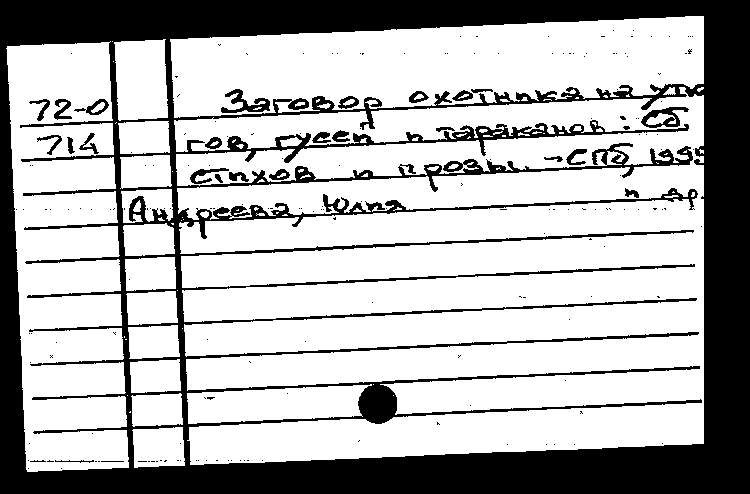 72-0 Заговор охотника на утю
714 гов, гусей и тараканов: Сб.
стихов и прозы. - СПб, 1995
Андреева, Юлия и др.